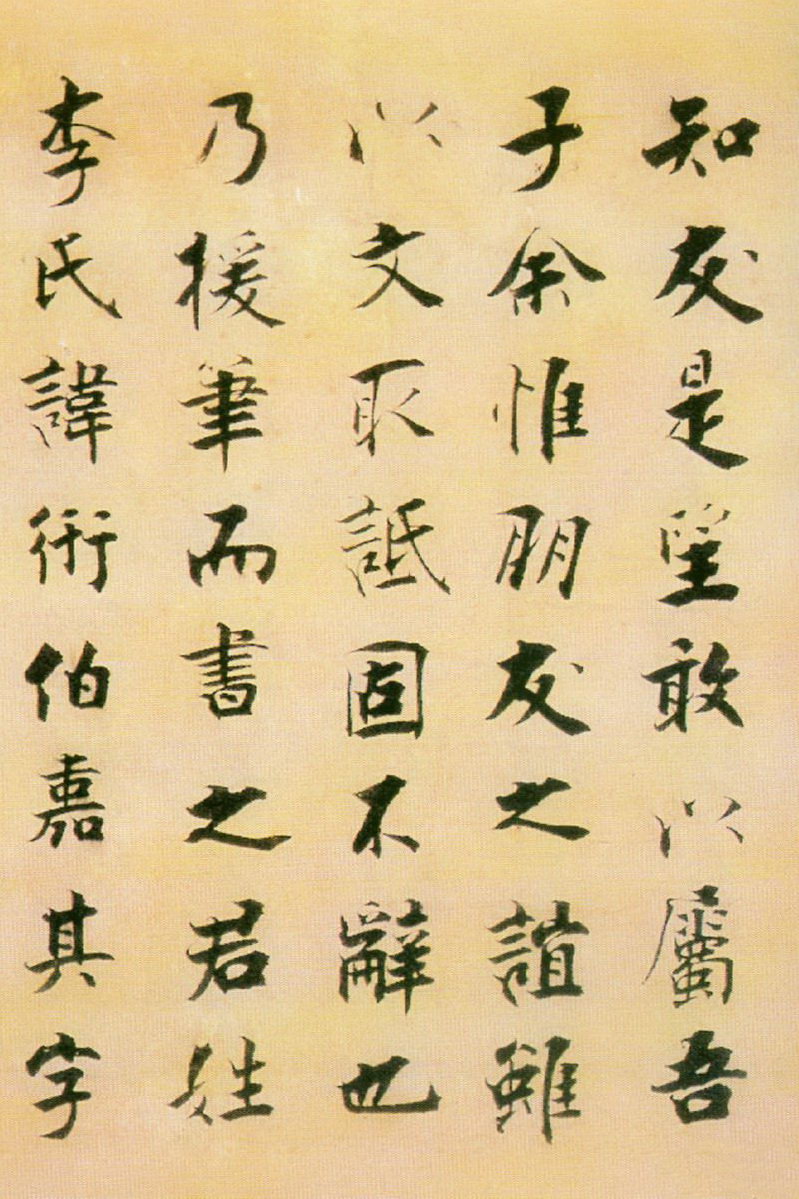 知友是望敢以屬吾
子余惟朋友之誼雖
以文取詆固不辭也
乃援筆而書之君姓
李氏諱衎伯嘉其字